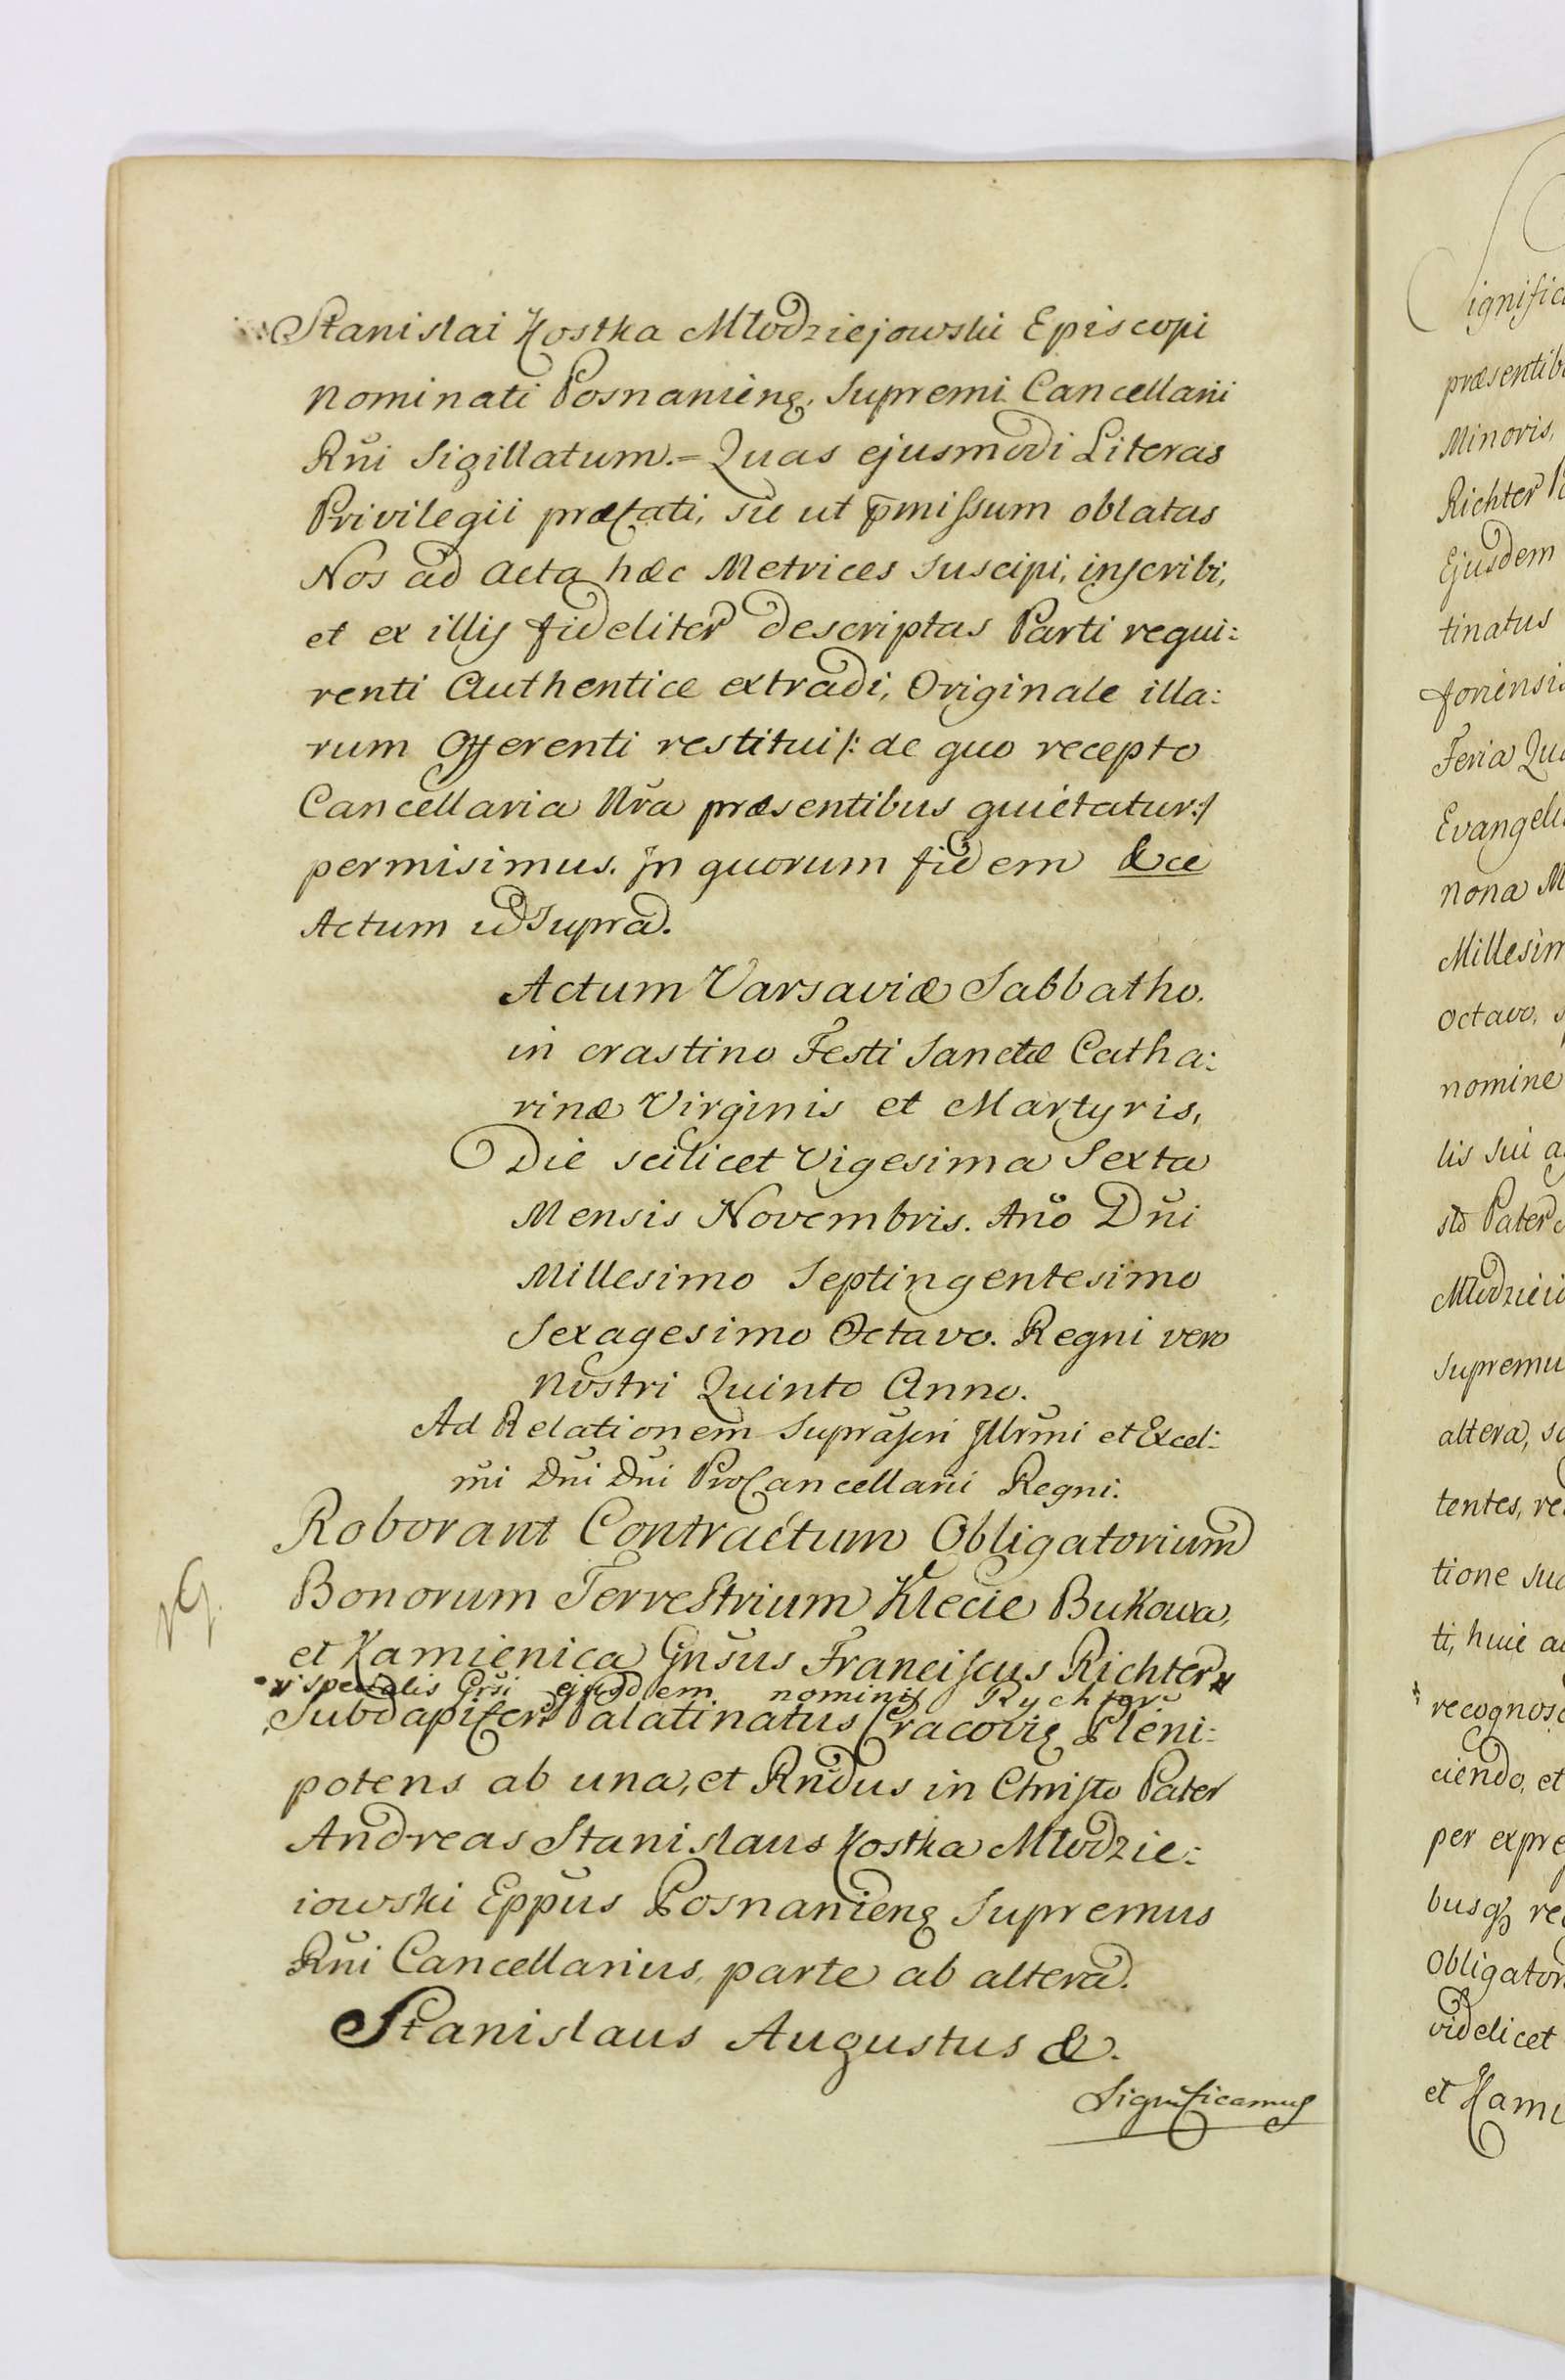 Stanislai Kostka Młodziejowski Episcopi
Nominati Posnanieng. Supremi Cancellarii
Rñi Sigillatum.= Quas ejusmodi Literas
Privilegii præfati, sic ut p̄missum oblatas
Nos ad Acta hæc Metrices suscipi, inscribi,
et ex illis fideliter descriptas Parti requi:
renti Authentice extradi, Originale illa:
rum Offerenti restitui /: de quo recepto
Cancellaria Nr̃a præsentibus quietatur :/
permisimus. In quorum fidem &ce
Actum ut Supra.
Actum Varsaviæ Sabbatho.
in crastino Festi Sanctæ Catha:
rinæ Virginis et Martyris,
Die scilicet Vigesima Sexta
Mensis Novembris. Año Dñi
Millesimo Septingentesimo
Sexagesimo Octavo. Regni vero
Nostri Quinto Anno.
Ad Relationem Suprascri Illrmi et Excel:
mi Dñi Dñi ProCancellarii Regni.
Roborant Contractum Obligatorium
Bonorum Terrestrium Klecie Bukowa,
et Kamienica Gnsus Franciscus Richter
specialis Grsi ejusdem nominis Rychter
Subdapifer Palatinatus Cracovię Pleni:
potens ab una, et Rndus in Christo Pater
Andreas Stanislaus Kostka Młodzie:
iowski Eppus Posnanieng Supremus
Rñi Cancellarius, parte ab altera.
Stanislaus Augustus &.
Significamus
ignific
præsentib
Minoris,
Richter
Ejusdem
tinatus
foriensis
Feria Qua
Evangeli
nona M
Millesim
Octavo,
nomine
lis sui a
sto Pater
Młodzieio
Supremu
altera,
tentes, re
tione sua
ti, huic a
recognos
ciendo, et
per expre
busq re
Obligator
videlicet
et Kami